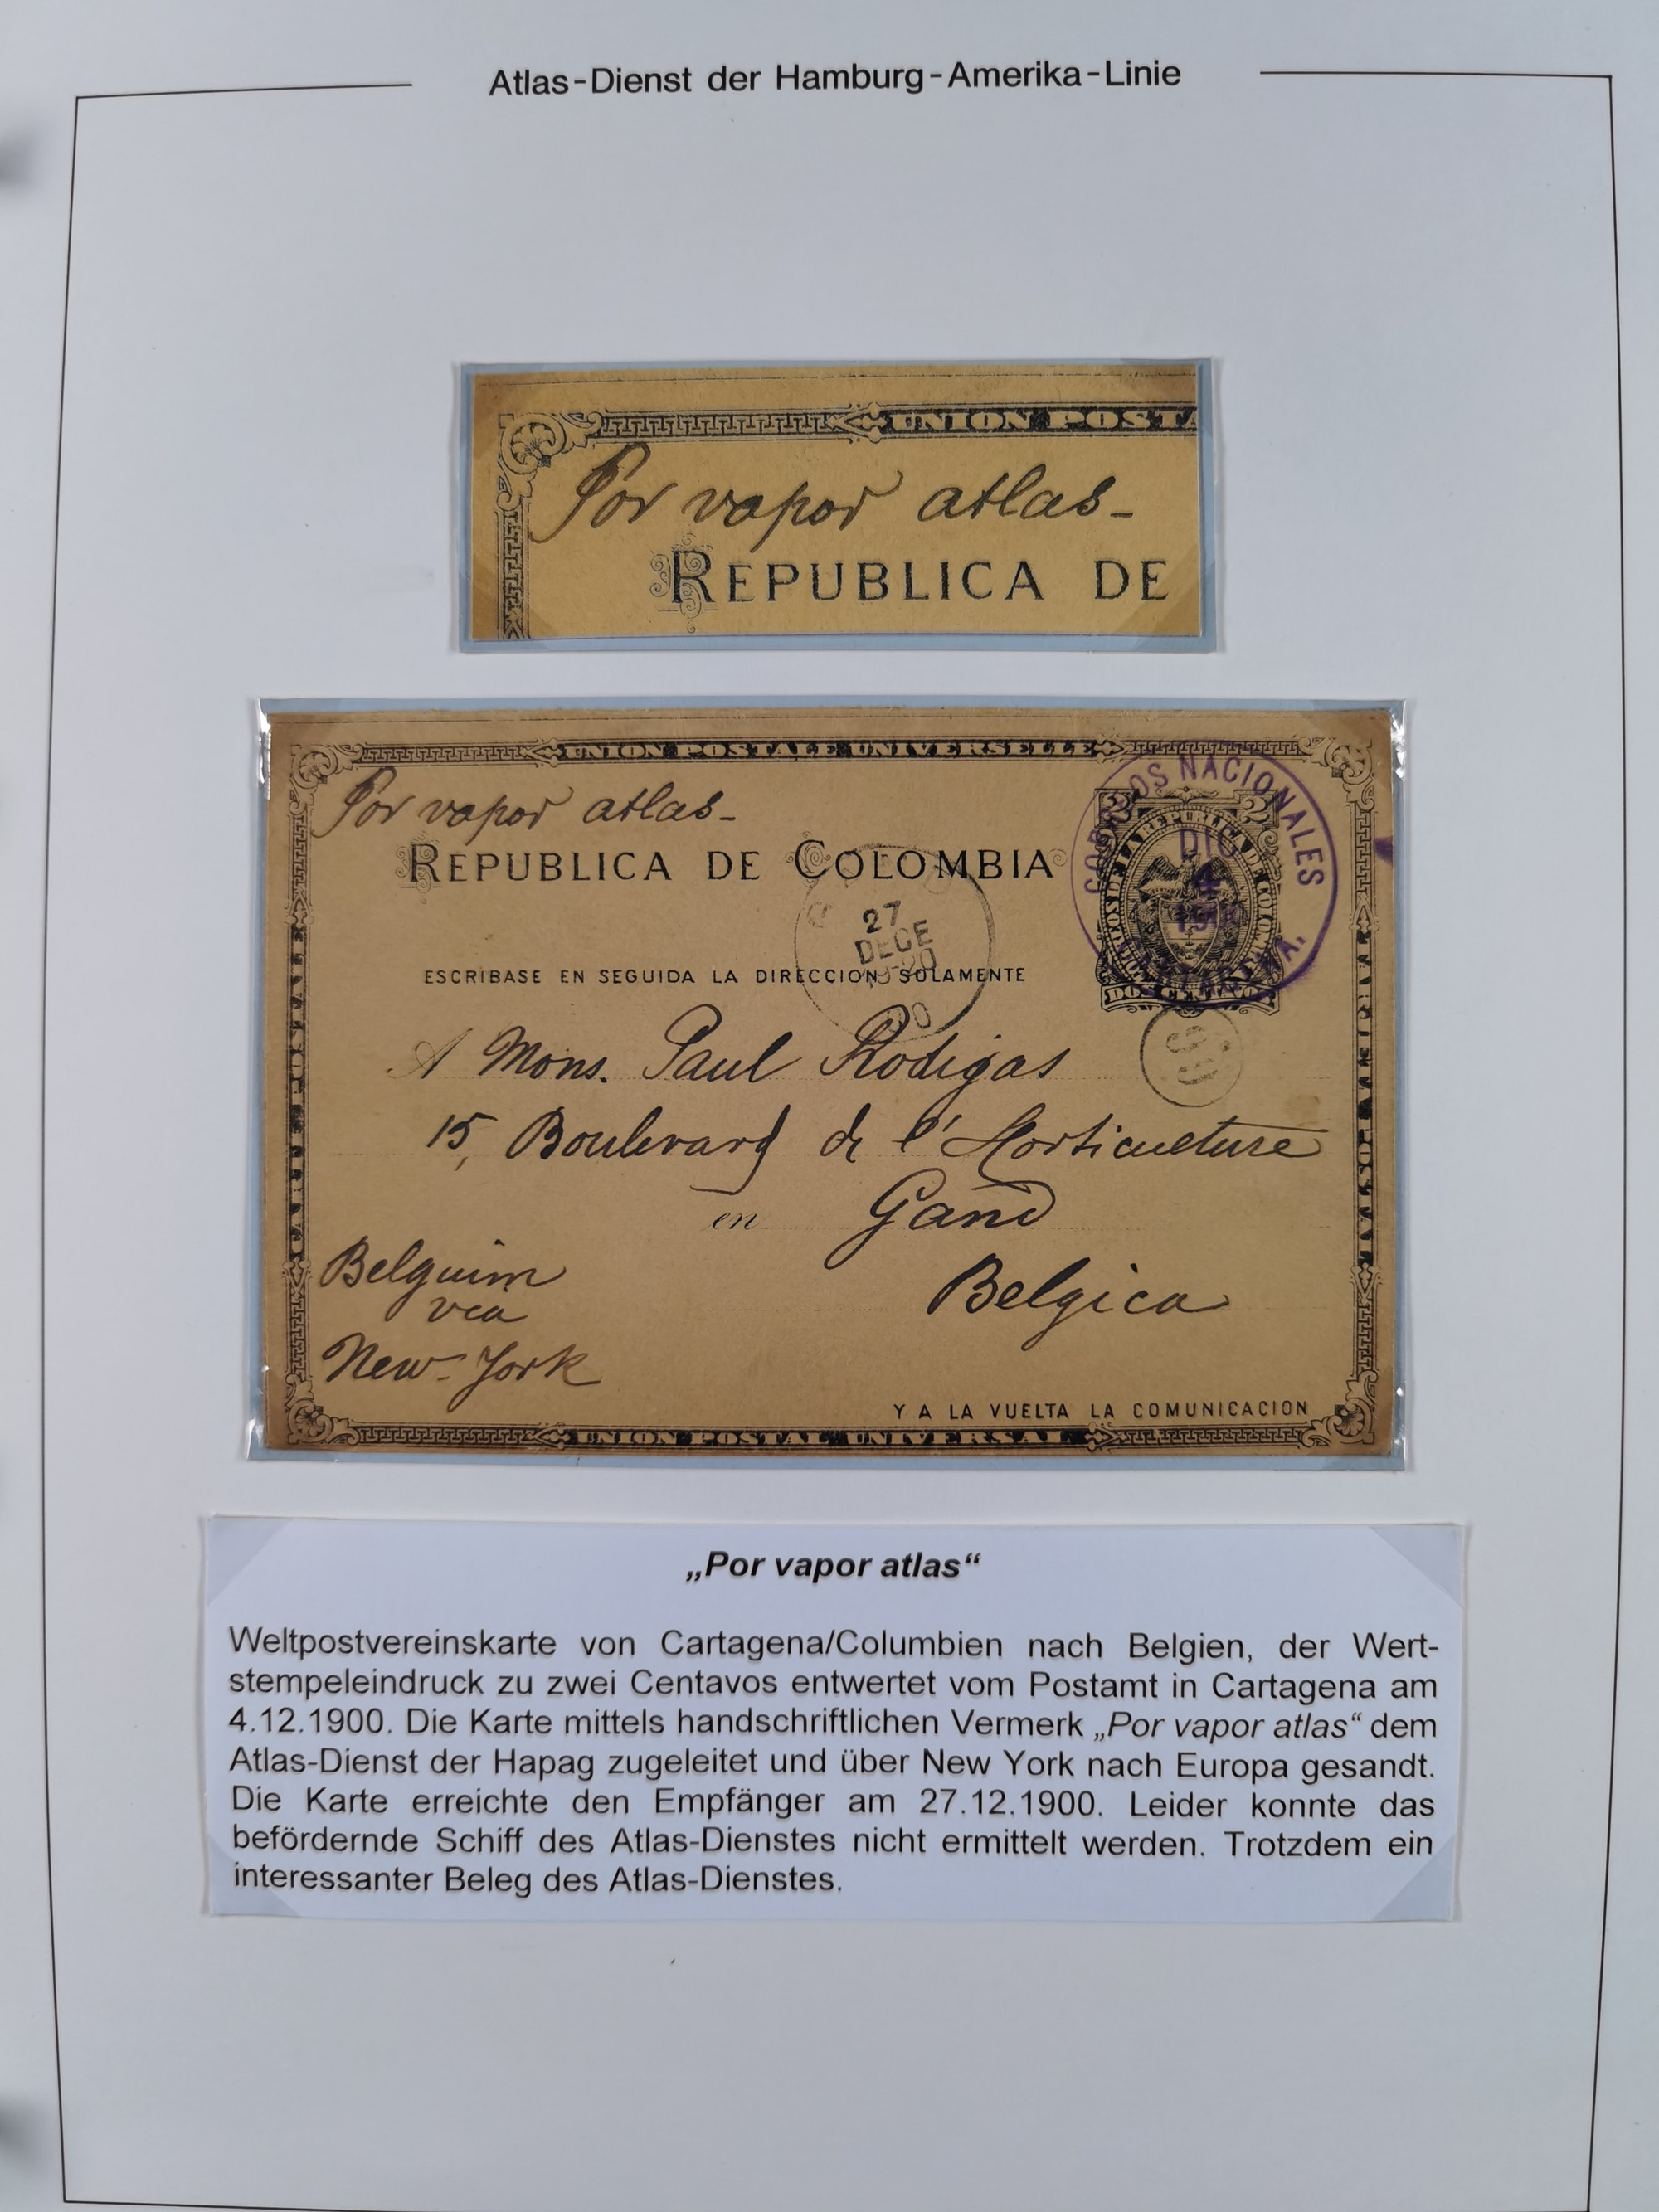 Atlas-Dienst der Hamburg-Amerika-Linie
UNION POSTA
Por vapor atlas-
REPUBLICA DE
UNION POSTALE UNIVERSELLE
Por vapor atlas-
REPUBLICA DE COLOMBIA
CORREOS NACIONALES
DIC
4
2 2
DOS CENTAVOS
27
DECE
ESCRIBASE EN SEGUIDA LA DIRECCION SOLAMENTE
A Mons. Paul Rodigas
15, Boulevard de l'Horticulture
en Gand
Belgica
Belguim
via
New-York
Y A LA VUELTA LA COMUNICACION
UNION POSTAL UNIVERSAL
CARTE POSTALE
„Por vapor atlas“
Weltpostvereinskarte von Cartagena/Columbien nach Belgien, der Wert-
stempeleindruck zu zwei Centavos entwertet vom Postamt in Cartagena am
4.12.1900. Die Karte mittels handschriftlichen Vermerk „Por vapor atlas“ dem
Atlas-Dienst der Hapag zugeleitet und über New York nach Europa gesandt.
Die Karte erreichte den Empfänger am 27.12.1900. Leider konnte das
befördernde Schiff des Atlas-Dienstes nicht ermittelt werden. Trotzdem ein
interessanter Beleg des Atlas-Dienstes.